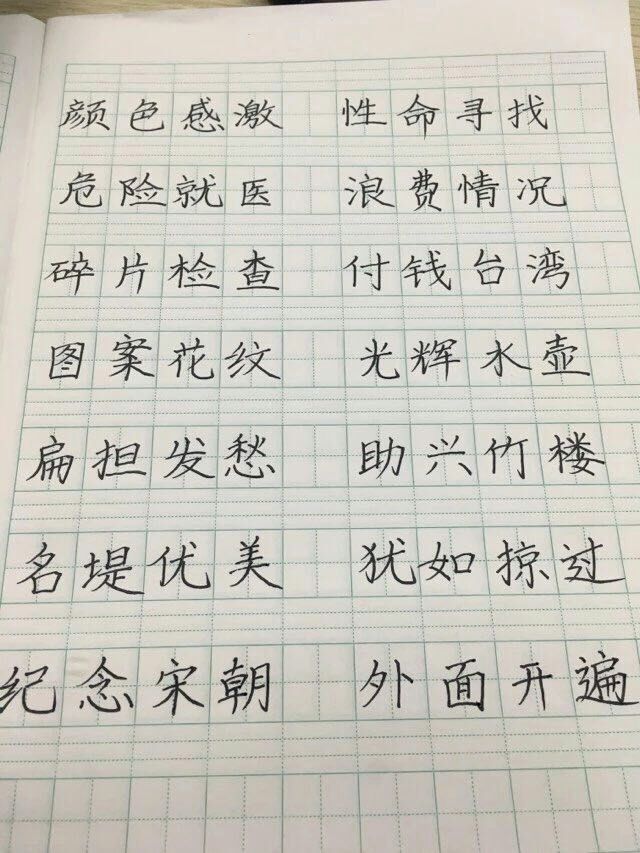 颜色感激 性命寻找
危险就医 浪费情况
碎片检查 付钱台湾
图案花纹 光辉水壶
扁担发愁 助兴竹楼
名堤优美 犹如掠过
纪念宋朝 外面开遍